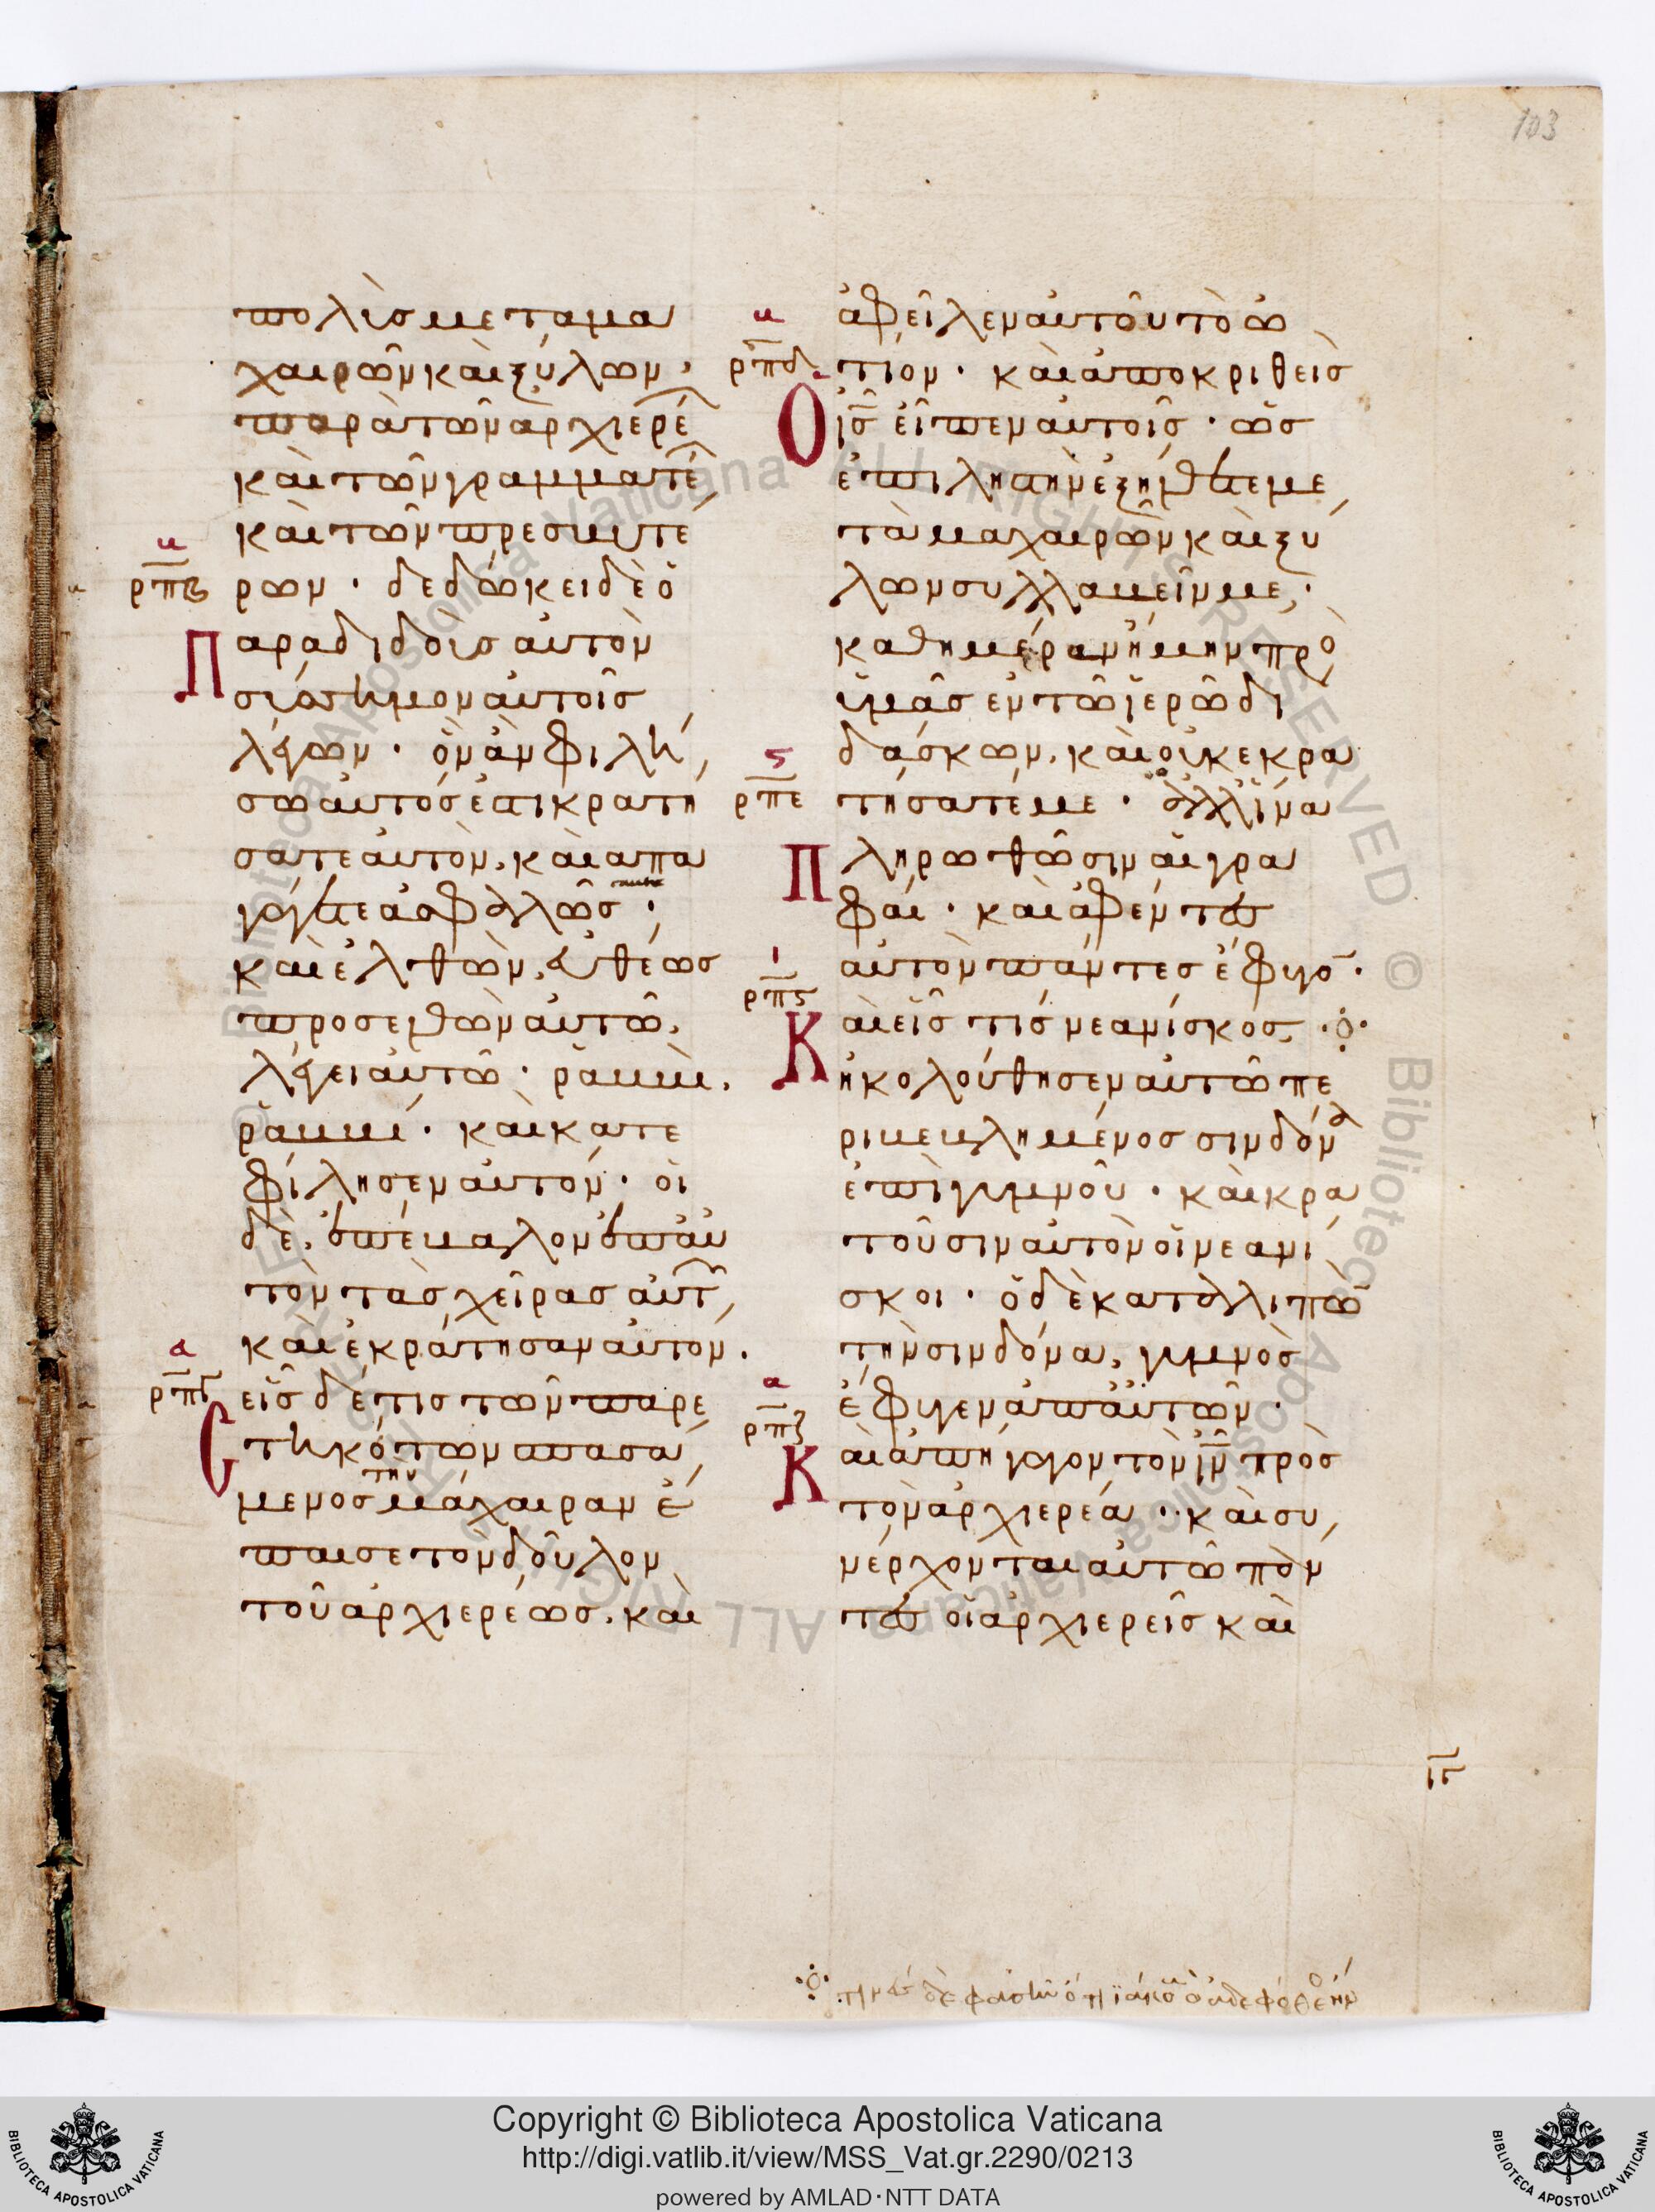 103
πολὺσ μετα μα
χαιρῶν καὶ ξύλων·
παρὰ τῶν ἀρχιερέ
καὶ τῶν γραμματέ
καὶ τῶν πρεσβυτέ
ρων · δεδώκει δὲ ὁ
Παραδιδοὺσ αὐτὸν
σύσσημον αὐτοῖσ
λέγων · ὃν ἂν φιλή
σω αὐτόσ ἐστι κρατή
σατε αὐτόν, καὶ απα
γάγετε ἀσφαλῶσ ·
καὶ ἐλθὼν, εὐθέωσ
προσελθὼν αὐτῶ,
λέγει αὐτῶ · ῥαββὶ,
ῥαββί · καὶ κατε
φίλησεν αὐτόν · οἱ
δὲ, ἐπέβαλον ἐπ αὐ
τὸν τὰσ χεῖρασ αὐτ
καὶ ἐκράτησαν αὐτον.
εἷσ δέ τισ τῶν παρε
Ϲτηκότων σπασά
μενοσ τὴν μάχαιραν ἔ
παισε τὸν δοῦλον
τοῦ ἀρχιερέωσ, καὶ
β
ρπβ
α
ρπγ
ἀφεῖλεν αὐτοῦ τὸ ὠ
τίον · καὶ ἀποκριθεὶσ
Ὁ ι̅σ̅ εἶπεν αὐτοῖσ · ὡσ
ἐπὶ ληστὴν ἐξήλθετε με
τὰ μαχαιρῶν καὶ ξύ
λων συλλαβεῖν με,·
καθημέραν ἤμην πρὸ
ὑμᾶσ ἐν τῶ ἱερῶ δι
δάσκων, καὶ οὐκ εκρα
τήσατέ με · ἀλλ ἵνα
Πληρωθῶσιν αἱ γρα
φαί · καὶ ἀφέντεσ
αὐτὸν πάντεσ ἔφυγο̅ ·
Καὶ εἷσ τίσ νεανίσκοσ
ἠκολούθησεν αὐτῶ πε
ριβεβλημένοσ σινδόνα
ἐπὶ γυμνοῦ · καὶ κρα
τοῦσιν αὐτὸν οἱ νεανί
σκοι · ὁ δὲ καταλιπὼ̅
τὴν σινδόνα, γυμνὸσ
ἔφυγεν ἀπ αὐτῶν ·
Καὶ ἀπήγαγον τὸν ι̅ν̅ πρὸσ
τὸν ἀρχιερέα · καὶ συ
νέρχονται αὐτῶ πάν
τεσ οἱ ἀρχιερεῖσ καὶ
β
ρπδ
ς
ρπε
ι
ρπς
α
ρπζ
Copyright © Biblioteca Apostolica Vaticana
http://digi.vatlib.it/view/MSS_Vat.gr.2290/0213
powered by AMLAD·NTT DATA
BIBLIOTECA APOSTOLICA VATICANA
BIBLIOTECA APOSTOLICA VATICANA